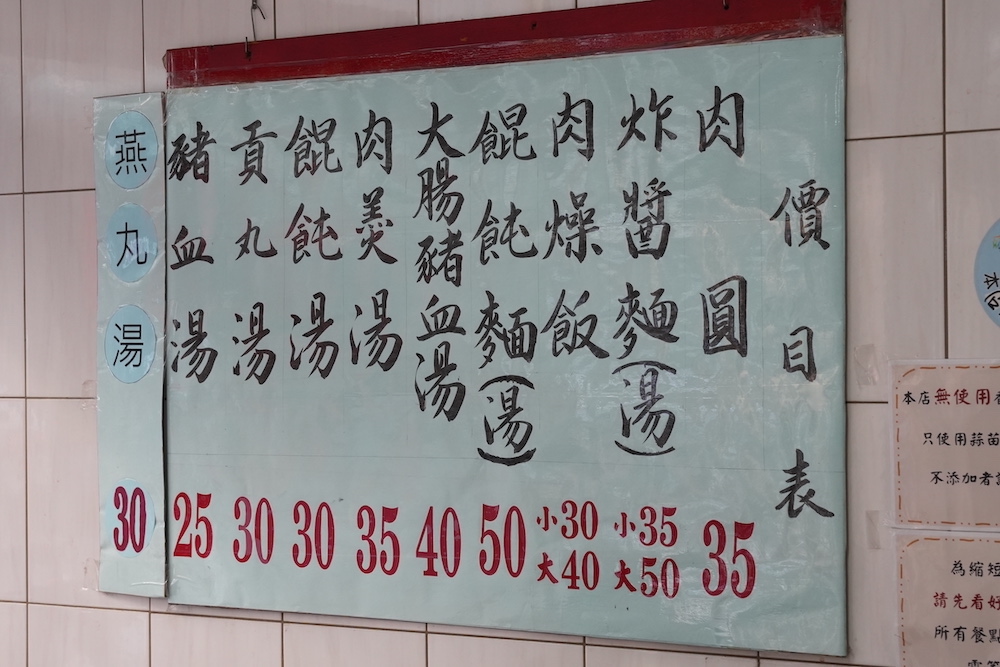 價目表
肉圓 35
炸醬麵(湯) 小35 大50
肉燥飯 小30 大40
餛飩麵(湯) 50
大腸豬血湯 40
肉羹湯 35
餛飩湯 30
貢丸湯 30
豬血湯 25
燕丸湯 30
本店無使用
只使用蒜苗
不添加者
為縮短
請先看好
所有餐點